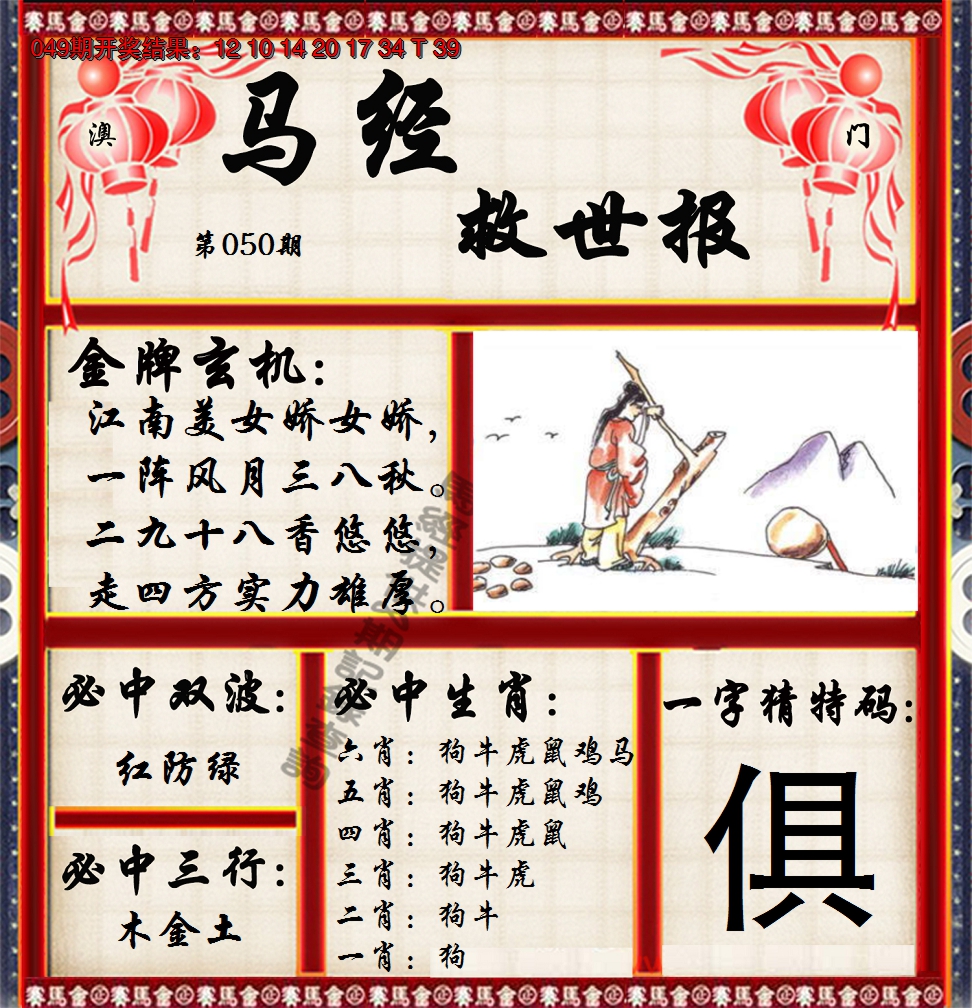 049期开奖结果：12 10 14 20 17 34 T 39
澳
门
马经
救世报
第050期
金牌玄机：
江南美女娇女娇，
一阵风月三八秋。
二九十八香悠悠，
走四方实力雄厚。
必中双波：
红防绿
必中三行：
木金土
必中生肖：
六肖：狗牛虎鼠鸡马
五肖：狗牛虎鼠鸡
四肖：狗牛虎鼠
三肖：狗牛虎
二肖：狗牛
一肖：狗
一字猜特码：
俱